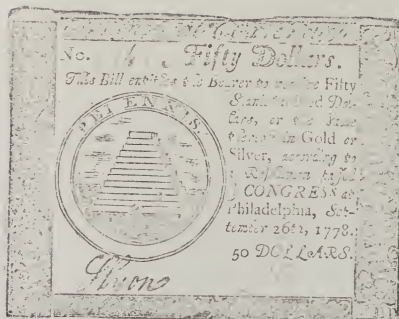 No. Fifty Dollars.
This Bill entitles the Bearer to receive Fifty
Spanish milled Dol-
lars, or the
in Gold or
Silver, according to
a Resolution
CONGRESS at
Philadelphia, Sep-
tember 26th, 1778.
50 DOLLARS.
PERENNIS.